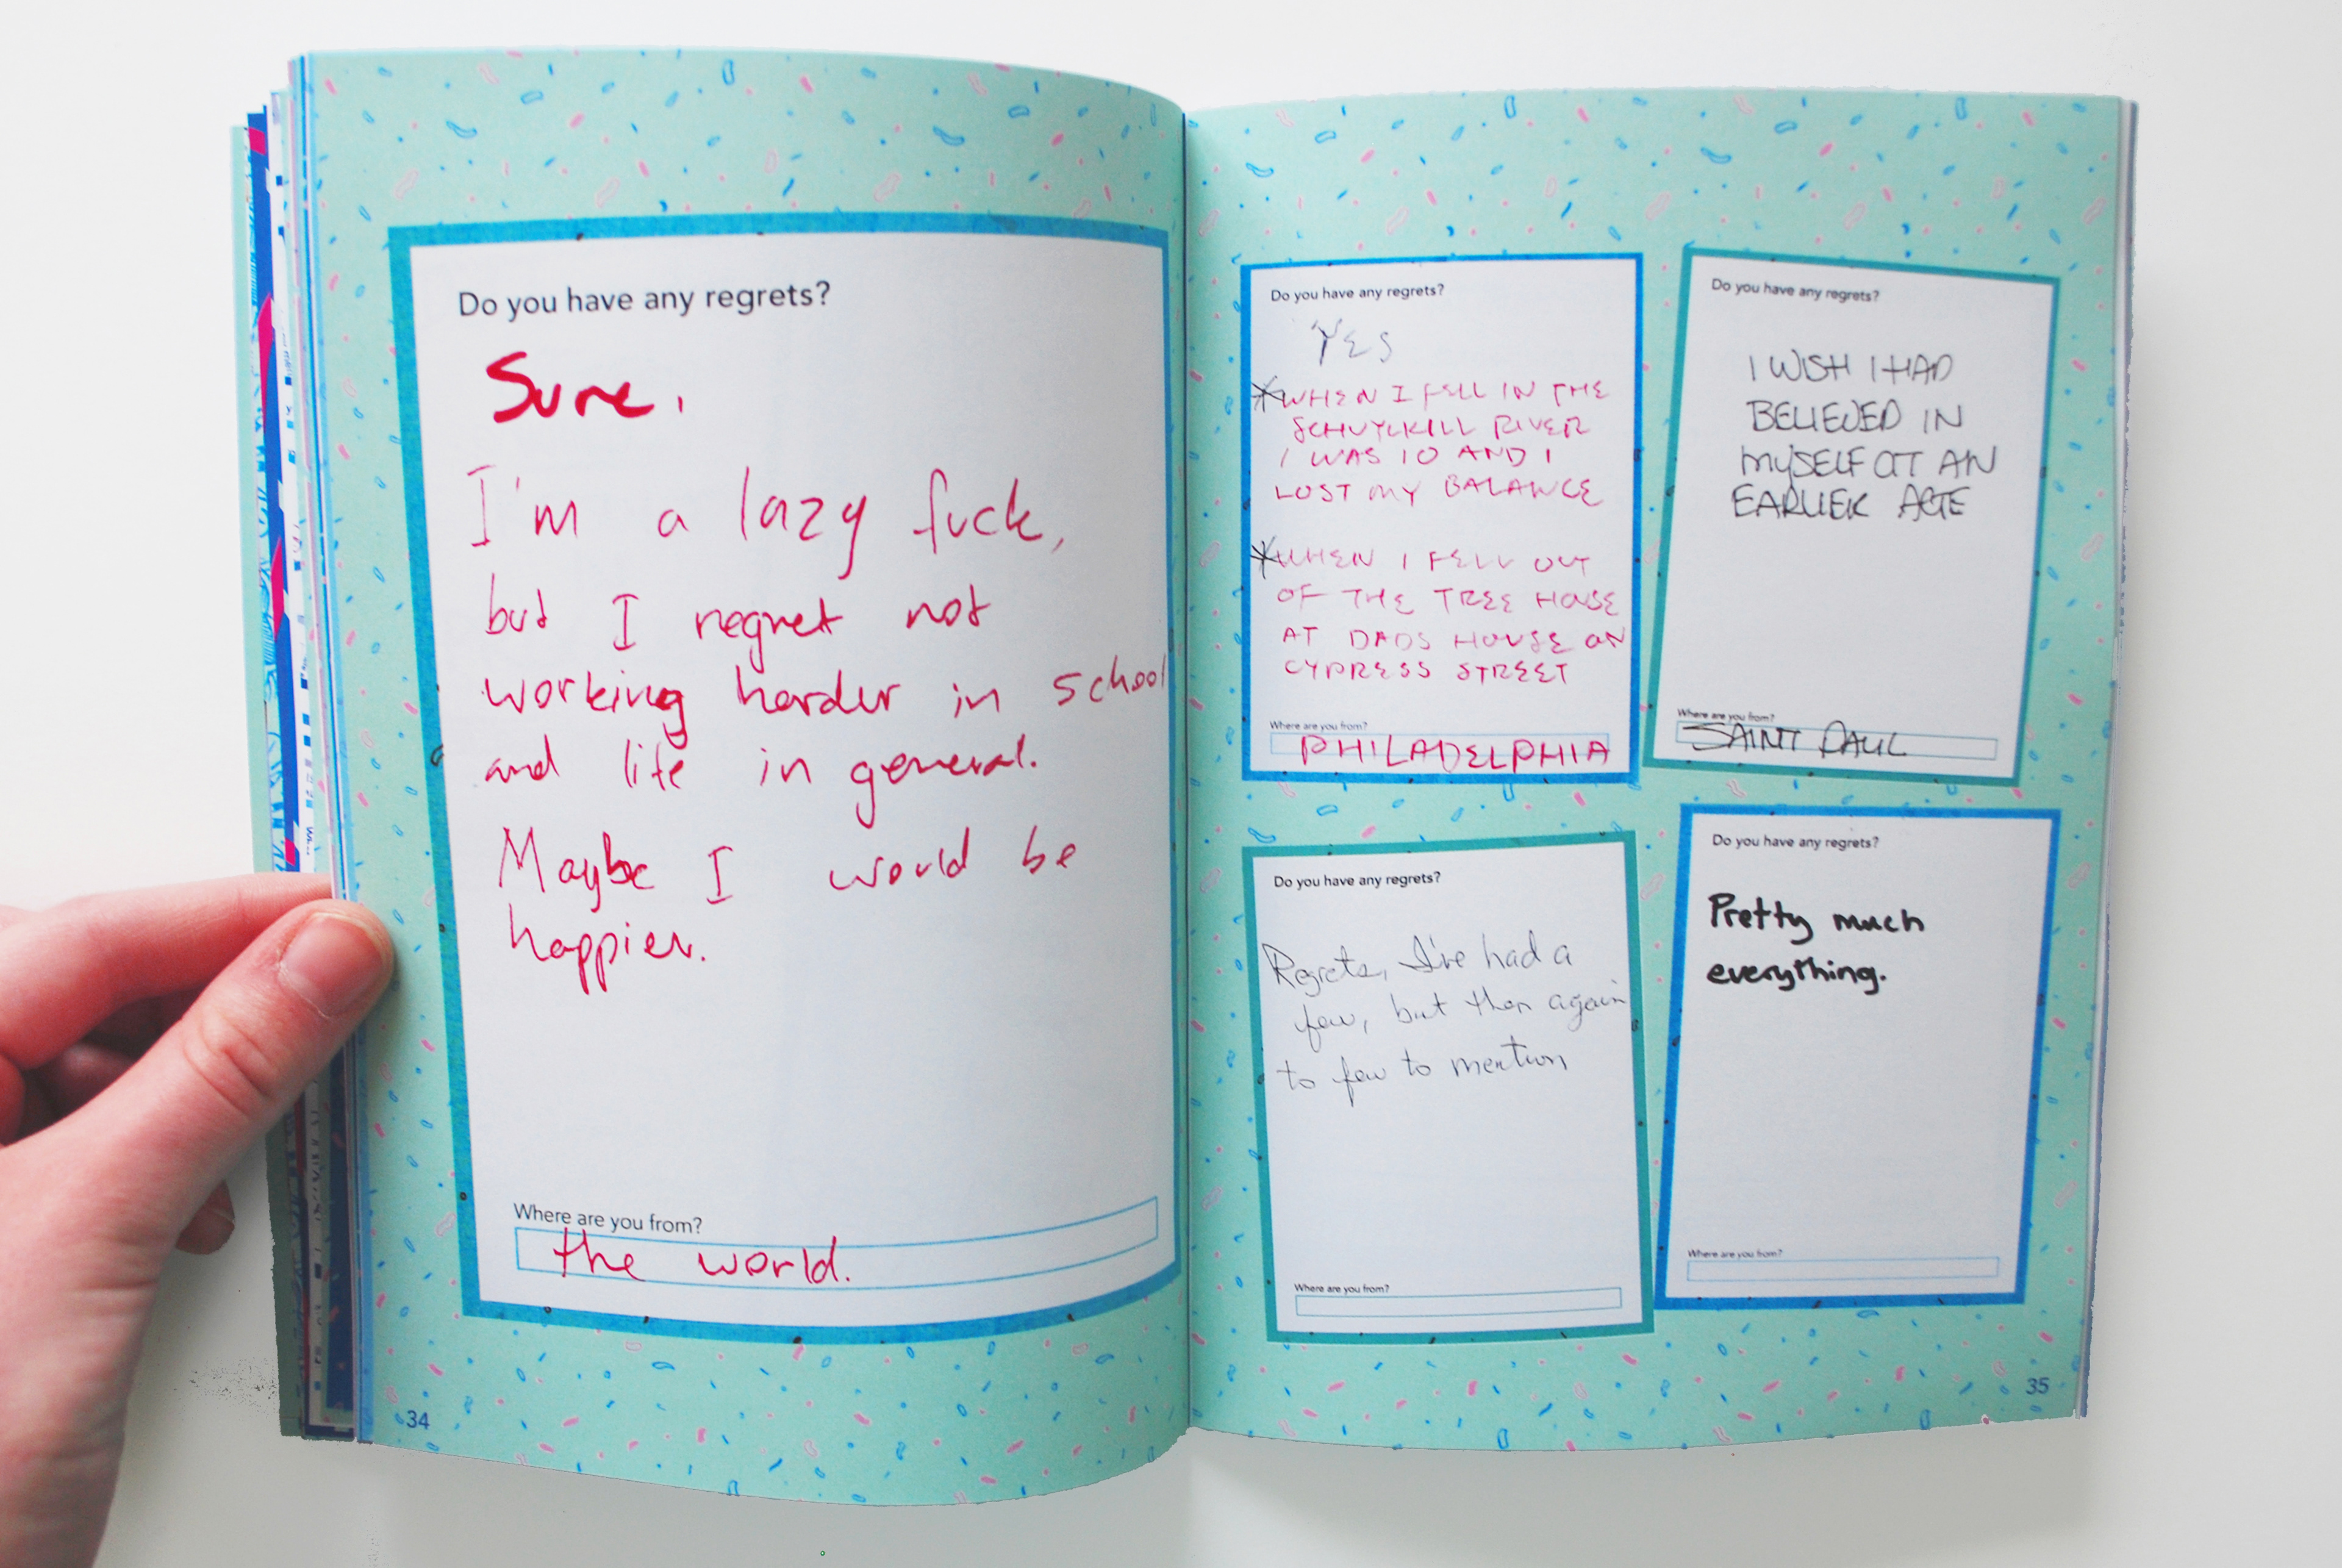 Do you have any regrets?
Sure.
I'm a lazy fuck,
but I regret not
working harder in school
and life in general.
Maybe I would be
happier.
Where are you from?
the world.
34
Do you have any regrets?
YES
*WHEN I FELL IN THE
SCHUYLKILL RIVER
I WAS 10 AND I
LOST MY BALANCE
*WHEN I FELL OUT
OF THE TREE HOUSE
AT DADS HOUSE ON
CYPRESS STREET
Where are you from?
PHILADELPHIA
Do you have any regrets?
I WISH I HAD
BELIEVED IN
MYSELF AT AN
EARLIER AGE
Where are you from?
SAINT PAUL
Do you have any regrets?
Regrets, I've had a
few, but then again
to few to mention
Where are you from?
Do you have any regrets?
Pretty much
everything.
Where are you from?
35